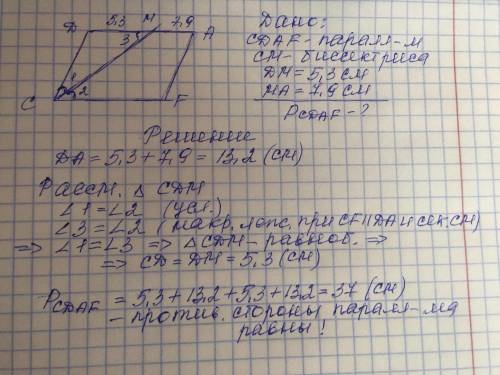 D 5,3 M 7,9 A
3
1
2
C F
Дано:
CDAF - паралл-м
CM - биссектриса
DM = 5,3 см
MA = 7,9 см
PCDAF - ?
Решение
DA = 5,3 + 7,9 = 13,2 (см)
Рассм. △ CDM
∠1 = ∠2 (усл.)
∠3 = ∠2 (накр. лежс. при CF || DA и сек. CM)
⇒ ∠1 = ∠3 ⇒ △ CDM - равноб. ⇒
⇒ CD = DM = 5,3 (см)
PCDAF = 5,3 + 13,2 + 5,3 + 13,2 = 37 (см)
- против. стороны паралл-ма
равны!